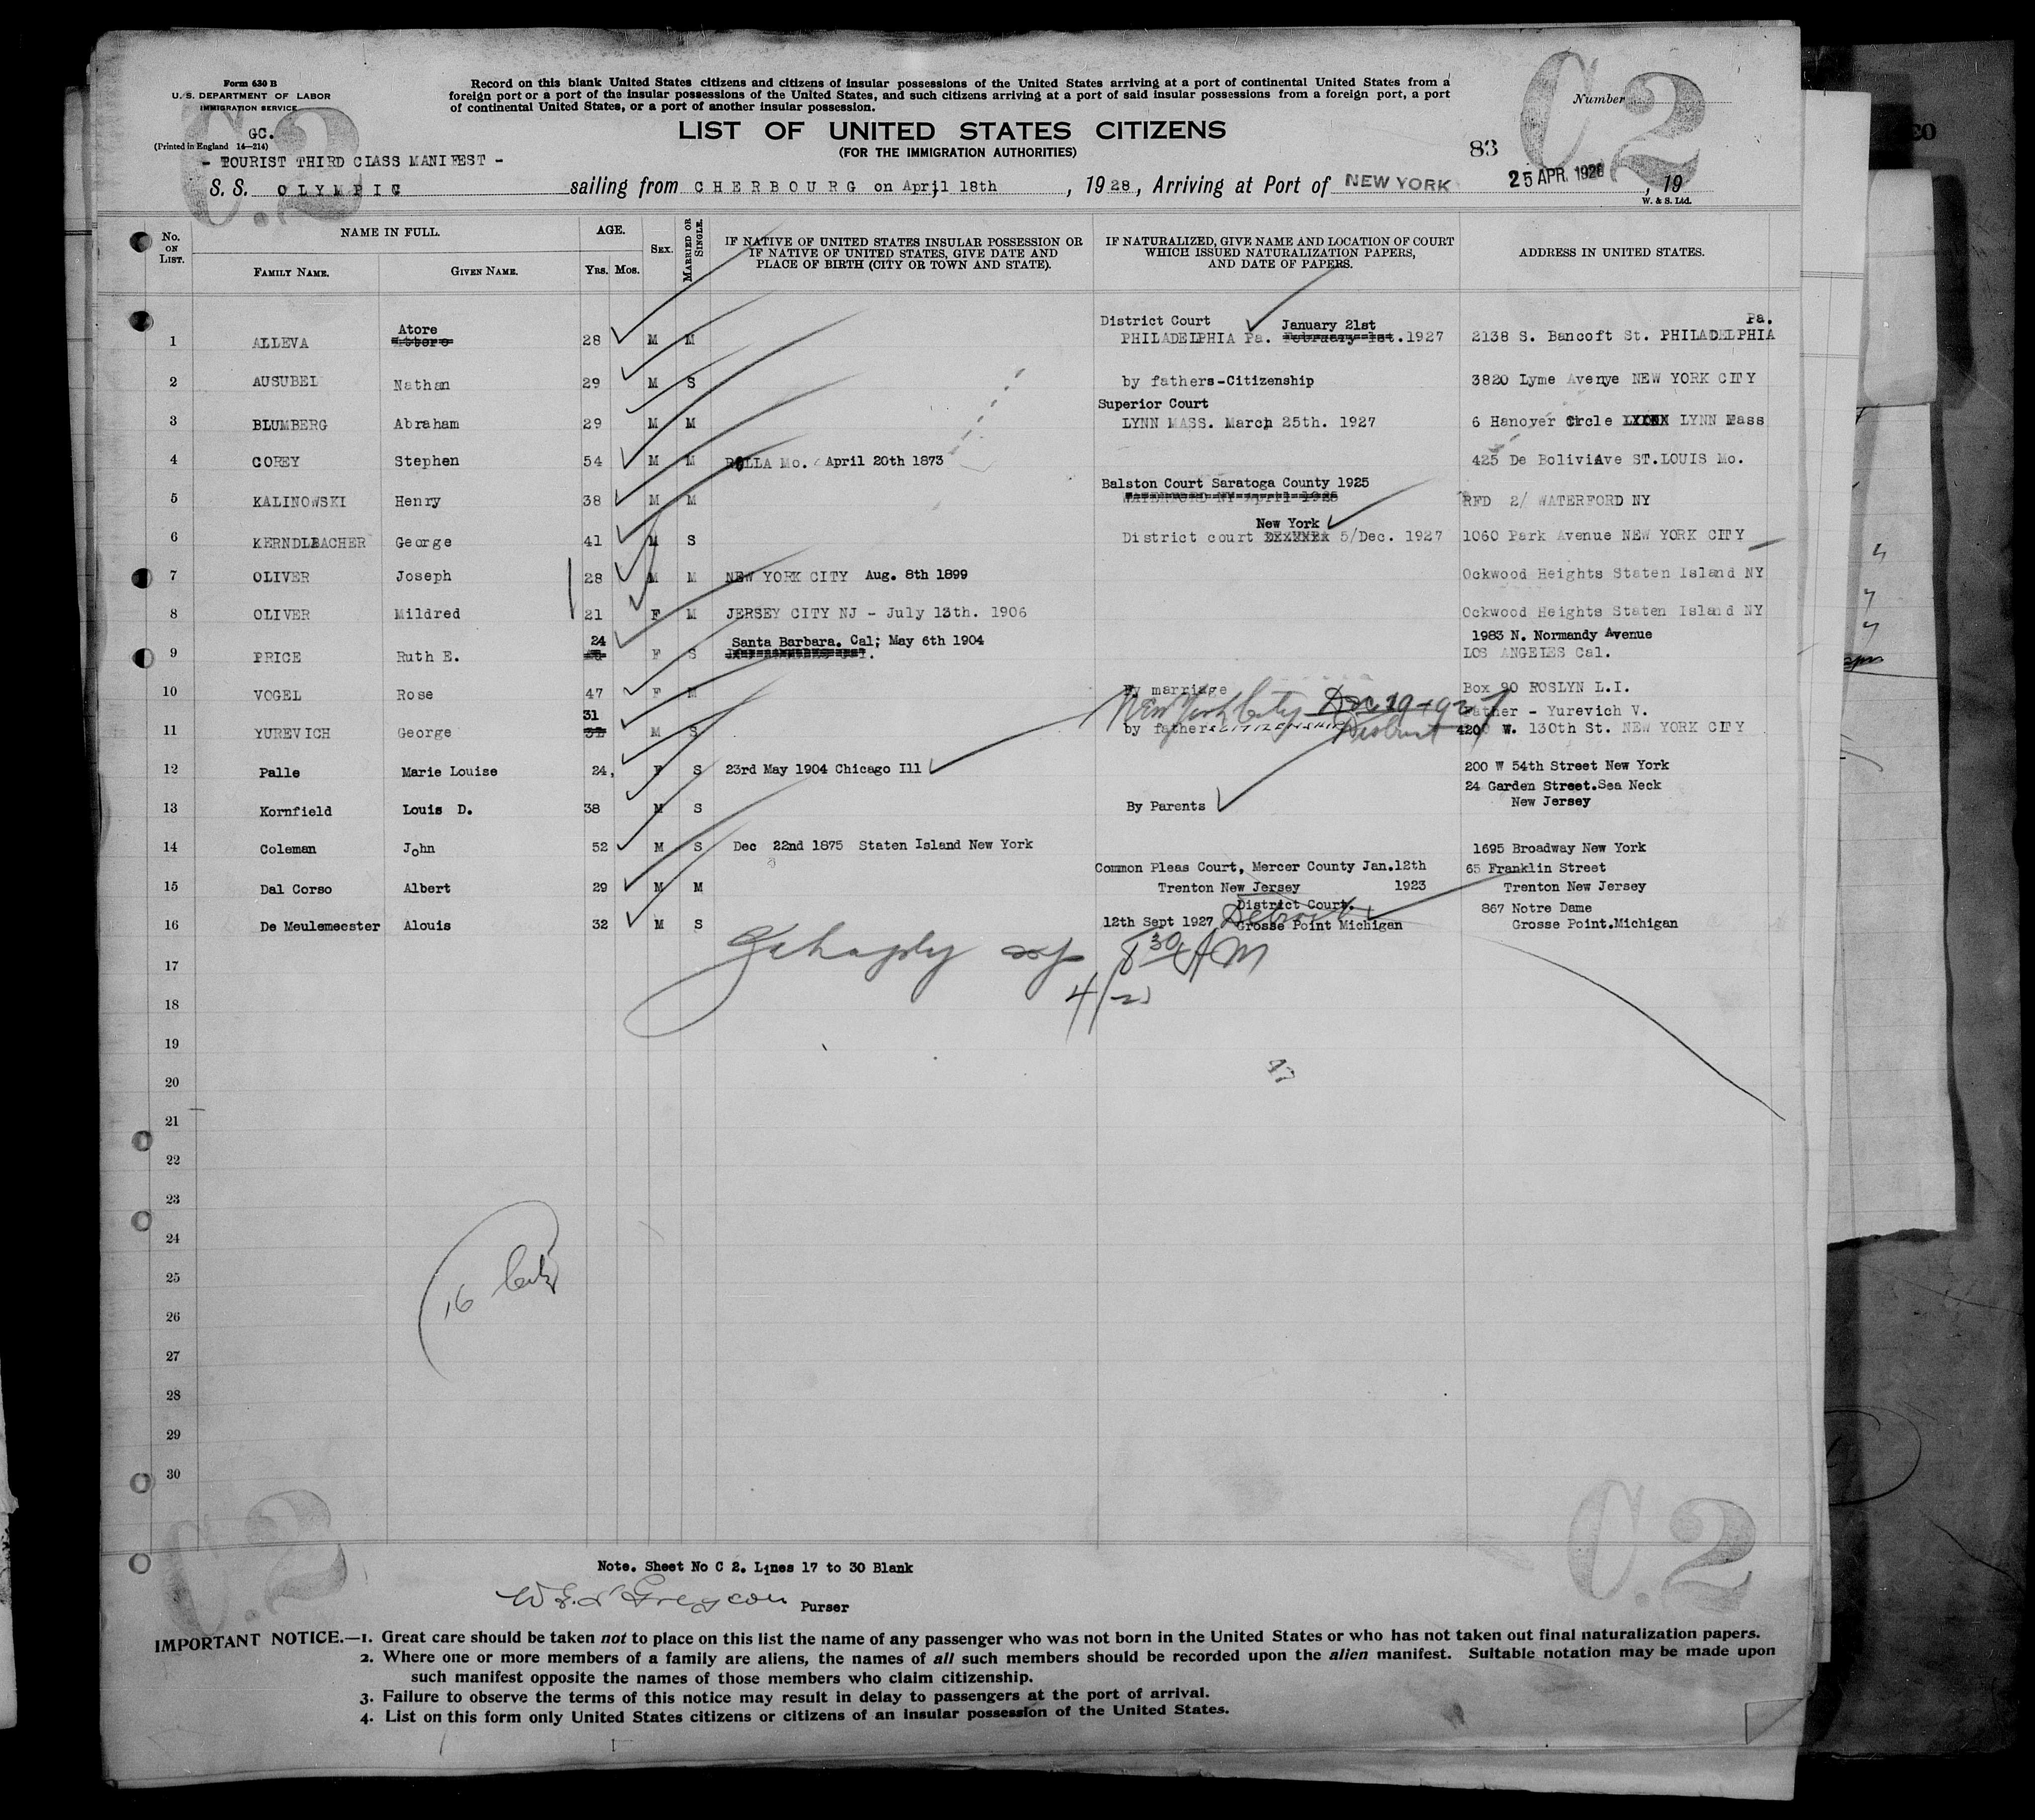 Form 630 B
U. S. DEPARTMENT OF LABOR
IMMIGRATION SERVICE
GC.
(Printed in England 14—214)
Record on this blank United States citizens and citizens of insular possessions of the United States arriving at a port of continental United States from a
foreign port or a port of the insular possessions of the United States, and such citizens arriving at a port of said insular possessions from a foreign port, a port
of continental United States, or a port of another insular possession.
C.2
C2
Number
LIST OF UNITED STATES CITIZENS
(FOR THE IMMIGRATION AUTHORITIES)
83
- TOURIST THIRD CLASS MANIFEST -
S. S. OLYMPIC sailing from CHERBOURG on April 18th , 1928, Arriving at Port of NEW YORK 25 APR 1928 , 19
W. & S. Ltd.
No. ON LIST.
NAME IN FULL.
FAMILY NAME. GIVEN NAME.
AGE.
YRS. MOS.
SEX.
MARRIED OR SINGLE.
IF NATIVE OF UNITED STATES INSULAR POSSESSION OR
IF NATIVE OF UNITED STATES, GIVE DATE AND
PLACE OF BIRTH (CITY OR TOWN AND STATE).
IF NATURALIZED, GIVE NAME AND LOCATION OF COURT
WHICH ISSUED NATURALIZATION PAPERS,
AND DATE OF PAPERS.
ADDRESS IN UNITED STATES.
Atore District Court January 21st Pa.
1 ALLEVA Attore 28 M M PHILADELPHIA Pa. February 1st. 1927 2138 S. Bancoft St. PHILADELPHIA
2 AUSUBEL Nathan 29 M S by fathers-Citizenship 3820 Lyme Avenye NEW YORK CITY
Superior Court
3 BLUMBERG Abraham 29 M M LYNN MASS. March 25th. 1927 6 Hanover Circle LYNN Mass
4 COREY Stephen 54 M M ROLLA Mo. April 20th 1873 425 De BoliviAve ST.LOUIS Mo.
Balston Court Saratoga County 1925
5 KALINOWSKI Henry 38 M M WATERFORD NY April 1925 RFD 2/ WATERFORD NY
New York
6 KERNDLBACHER George 41 M S District court 5/Dec. 1927 1060 Park Avenue NEW YORK CITY
7 OLIVER Joseph 28 M M NEW YORK CITY Aug. 8th 1899 Ockwood Heights Staten Island NY
8 OLIVER Mildred 21 F M JERSEY CITY NJ - July 13th. 1906 Ockwood Heights Staten Island NY
24 Santa Barbara. Cal; May 6th 1904 1983 N. Normandy Avenue
9 PRICE Ruth E. F S LOS ANGELES Cal.
10 VOGEL Rose 47 F M By marriage Box 90 ROSLYN L.I.
New York City Dec 19 1927
31 Father - Yurevich V.
11 YUREVICH George M S by fathers citizenship District 420 W. 130th St. NEW YORK CITY
12 Palle Marie Louise 24, F S 23rd May 1904 Chicago Ill 200 W 54th Street New York
24 Garden Street.Sea Neck
13 Kornfield Louis D. 38 M S By Parents New Jersey
14 Coleman John 52 M S Dec 22nd 1875 Staten Island New York 1695 Broadway New York
Common Pleas Court, Mercer County Jan.12th 65 Franklin Street
15 Dal Corso Albert 29 M M Trenton New Jersey 1923 Trenton New Jersey
District Court. 867 Notre Dame
16 De Meulemeester Alouis 32 M S 12th Sept 1927 Detroit Grosse Point Michigan Grosse Point.Michigan
17
8 30 AM
18
19
20
21
22
23
24
25
16
26
27
28
29
30
C.2
C.2
Note. Sheet No C 2. Lines 17 to 30 Blank
Purser
IMPORTANT NOTICE.—1. Great care should be taken not to place on this list the name of any passenger who was not born in the United States or who has not taken out final naturalization papers.
2. Where one or more members of a family are aliens, the names of all such members should be recorded upon the alien manifest. Suitable notation may be made upon
such manifest opposite the names of those members who claim citizenship.
3. Failure to observe the terms of this notice may result in delay to passengers at the port of arrival.
4. List on this form only United States citizens or citizens of an insular possession of the United States.